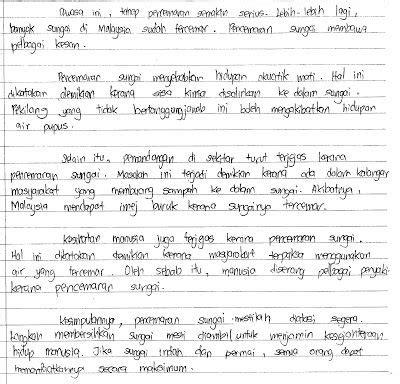 Dewasa ini, tahap pencemaran semakin serius. Lebih-lebih lagi,
banyak sungai di Malaysia sudah tercemar. Pencemaran sungai membawa
pelbagai kesan.
Pencemaran sungai menyebabkan hidupan akuatik mati. Hal ini
dikatakan demikian kerana sisa kimia disalirkan ke dalam sungai.
Pekilang yang tidak bertanggungjawab ini boleh mengakibatkan hidupan
air pupus.
Selain itu, pemandangan di sekitar turut terjejas kerana
pencemaran sungai. Masalah ini terjadi demikian kerana ada dalam kalangan
masyarakat yang membuang sampah ke dalam sungai. Akibatnya,
Malaysia mendapat imej buruk kerana sungainya tercemar.
Kesihatan manusia juga terjejas kerana pencemaran sungai.
Hal ini dikatakan demikian kerana masyarakat terpaksa menggunakan
air yang tercemar. Oleh sebab itu, manusia diserang pelbagai penyakit
kerana pencemaran sungai.
Kesimpulannya, pencemaran sungai mestilah diatasi segera.
Langkah membersihkan sungai mesti diambil untuk menjamin kesejahteraan
hidup manusia. Jika sungai indah dan permai, semua orang dapat
memanfaatkannya secara maksimum.